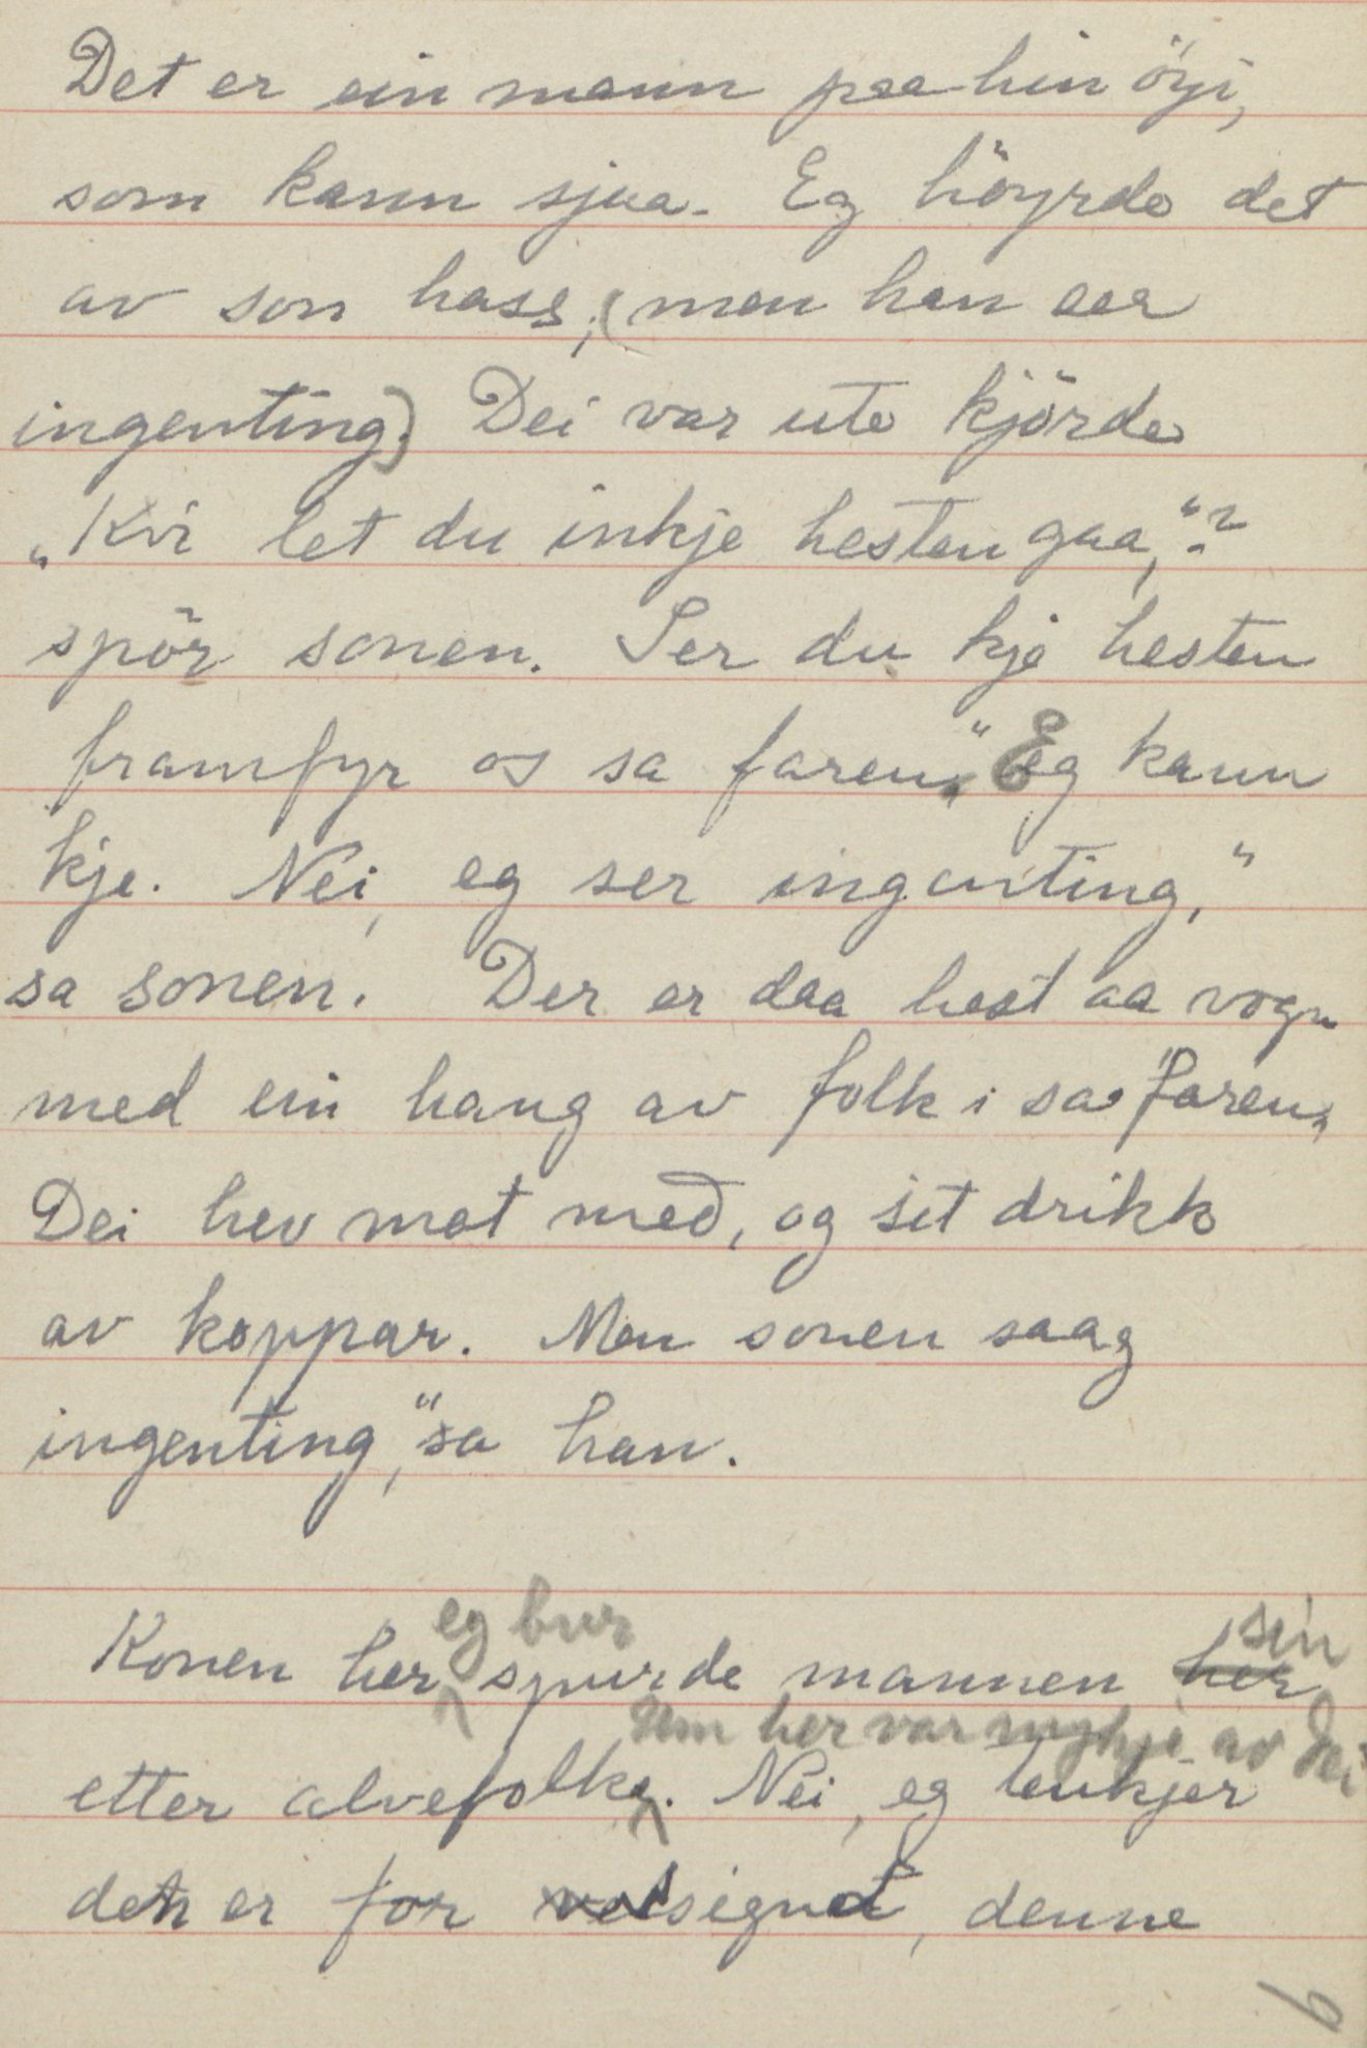 Det er ein mann paa hin öyi,
som kann sjaa. Eg höyrde det
av son hass; (men han aer
ingenting.) Dei var ute kjörde
„Kvi let du inkje hesten gaa,"?
spör sonen. Ser du kje hesten
framfyr os sa faren." „Eg kann
kje. Nei, eg ser ingenting,"
sa sonen. Der er daa hest aa vogn
med ein haug av folk i sa" faren„
Dei hev mat med, og sit drikk
av koppar. Men sonen saag
ingenting," sa han.
eg bur sin
Konen her spurde mannen her
um her var nughje av dei
etter alvefolke. Nei, eg tenkjer
den er for velsignet, denne
6